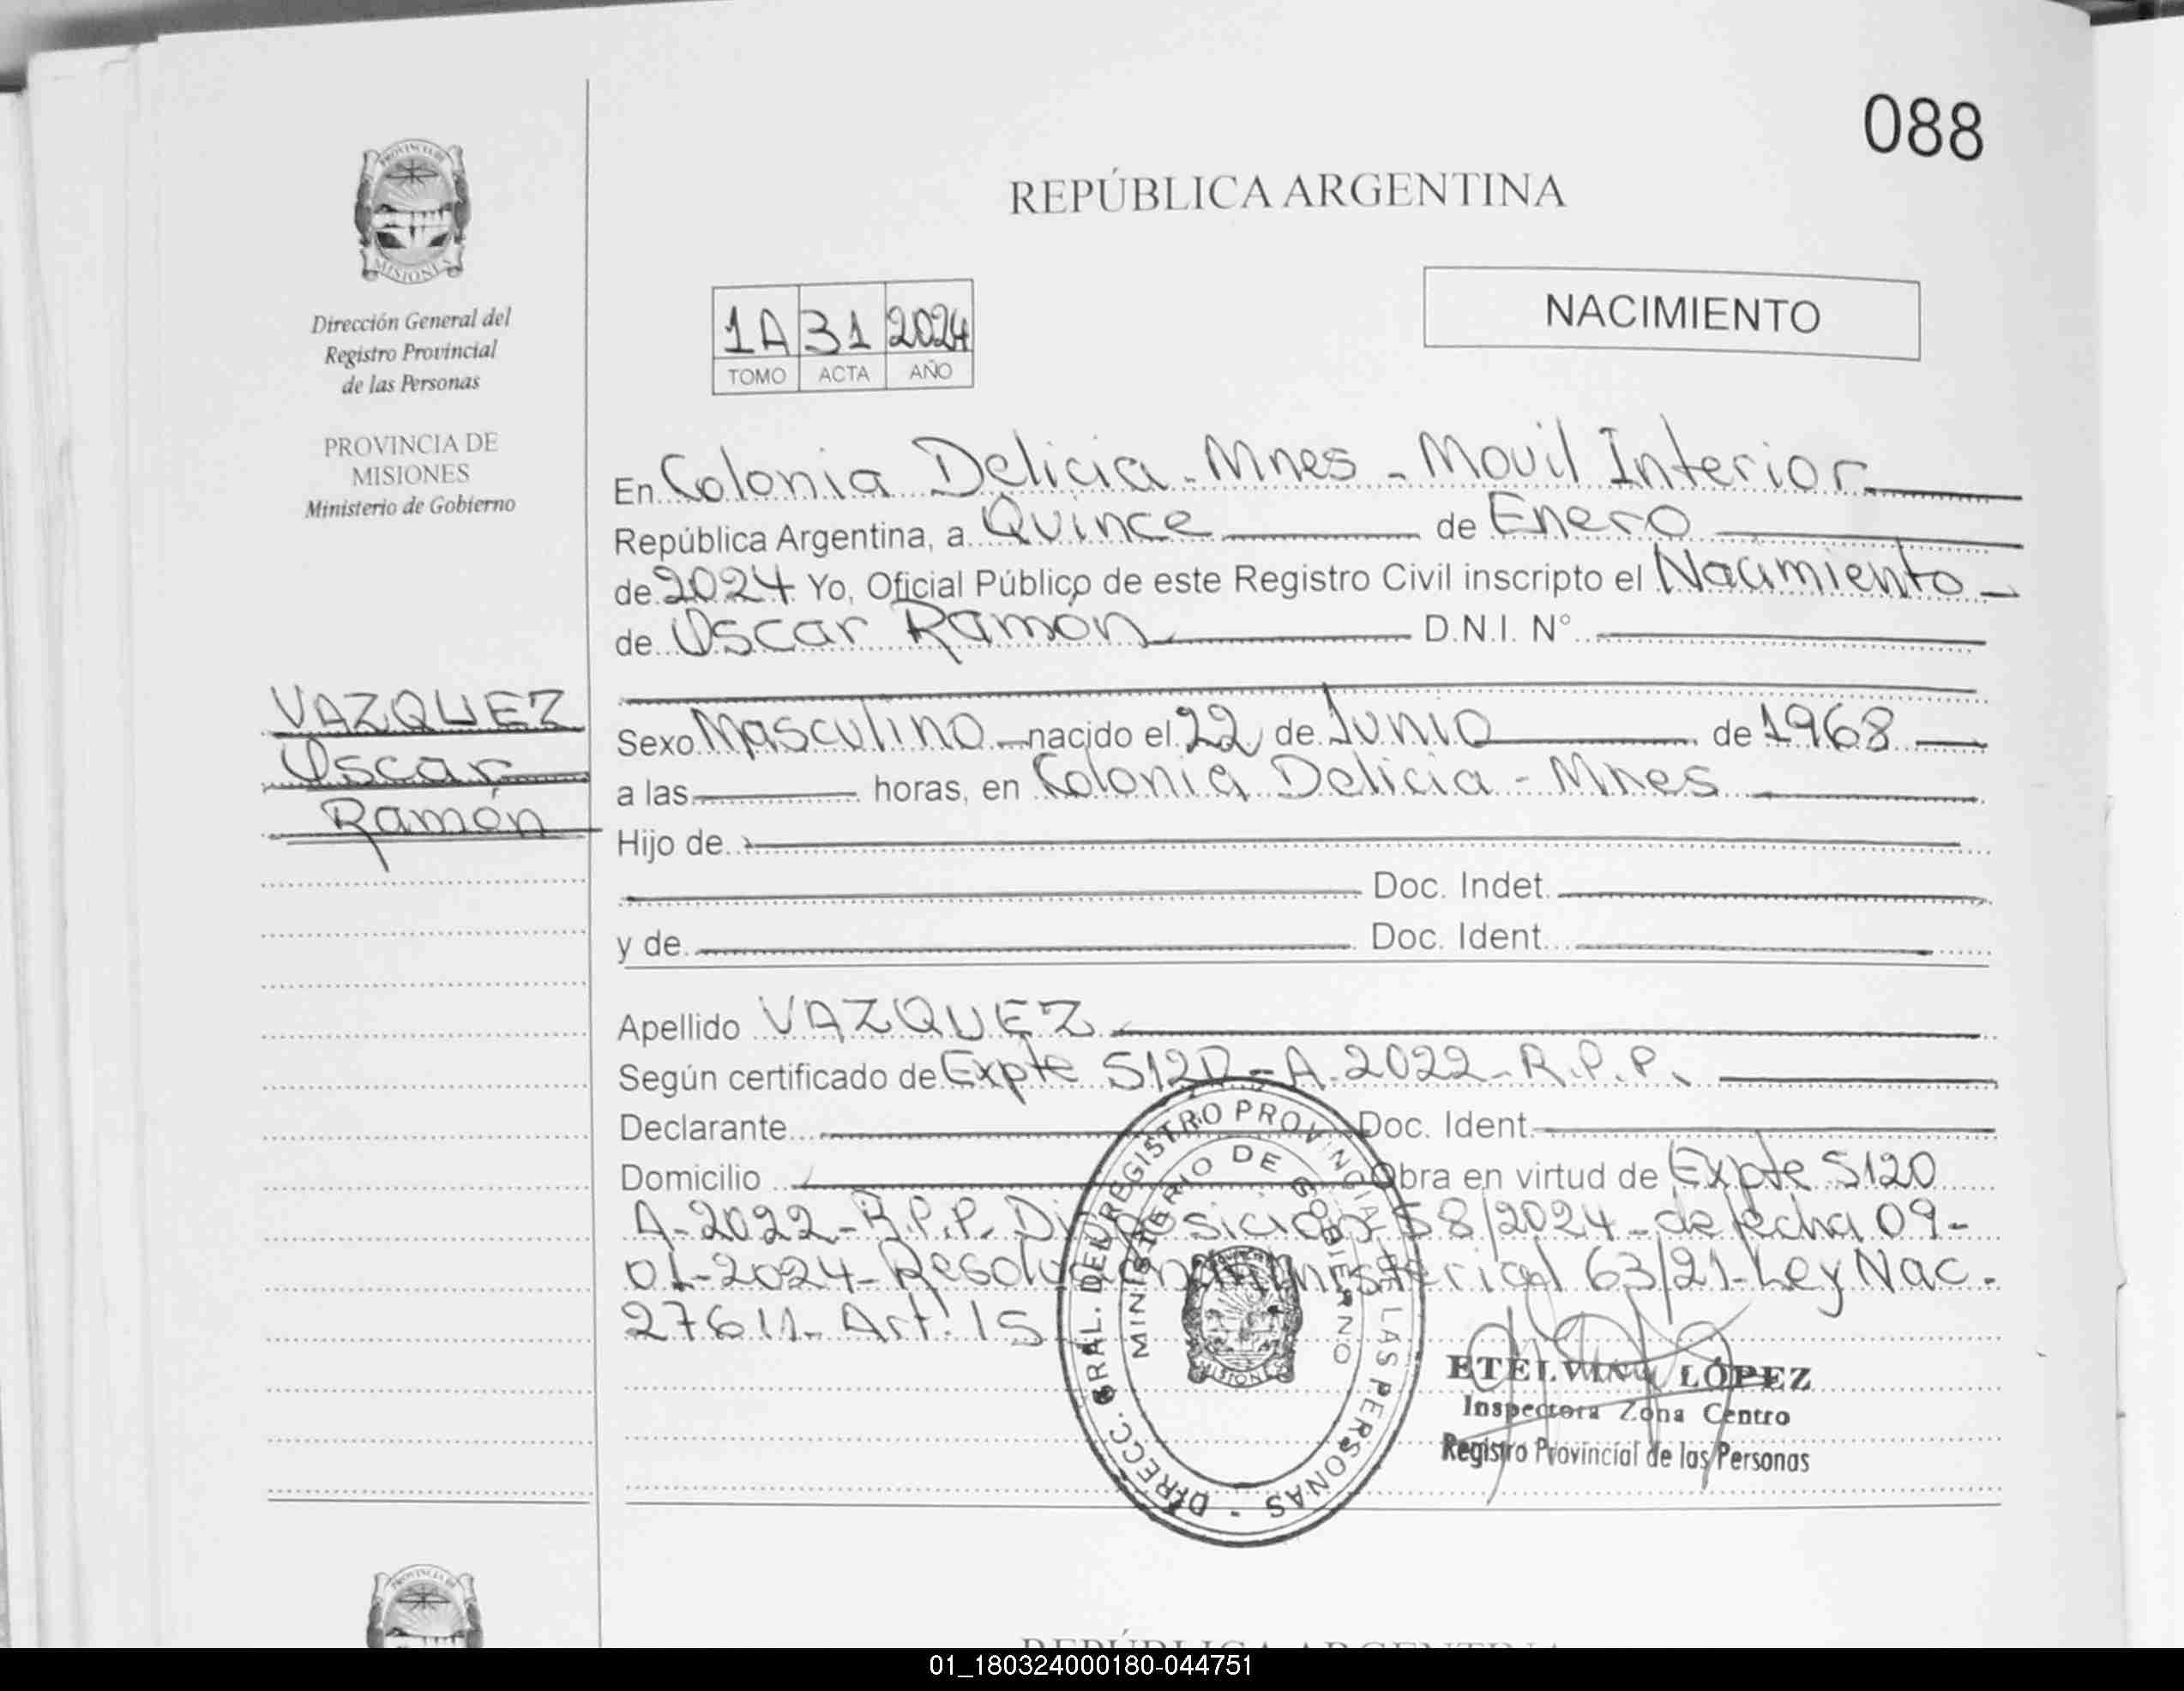 088
REPÚBLICA ARGENTINA
PROVINCIA DE
MISIONES
Dirección General del
Registro Provincial
de las Personas
PROVINCIA DE
MISIONES
Ministerio de Gobierno
1A 31 2024
TOMO ACTA AÑO
NACIMIENTO
En Colonia Delicia - Mnes - Movil Interior
República Argentina, a Quince de Enero
de 2024 Yo, Oficial Público de este Registro Civil inscripto el Nacimiento
de Oscar Ramón D.N.I. N°
VAZQUEZ
Oscar
Ramón
Sexo Masculino nacido el 22 de Junio de 1968
a las horas, en Colonia Delicia - Mnes
Hijo de
Doc. Indet.
y de Doc. Ident.
Apellido VAZQUEZ
Según certificado de Expte 5120-A-2022-R.P.P.
Declarante Doc. Ident.
Domicilio Obra en virtud de Expte 5120
A-2022-R.P.P. Disposición 58/2024 - de fecha 09-
01-2024- Resolución Ministerial 63/21-Ley Nac.
27611- Art. 15
DIRECC. GRAL. DEL REGISTRO PROVINCIAL DE LAS PERSONAS -
MINISTERIO DE GOBIERNO
MISIONES
ETELVINA LÓPEZ
Inspectora Zona Centro
Registro Provincial de las Personas
PROVINCIA DE
REPÚBLICA ARGENTINA
01_180324000180-044751